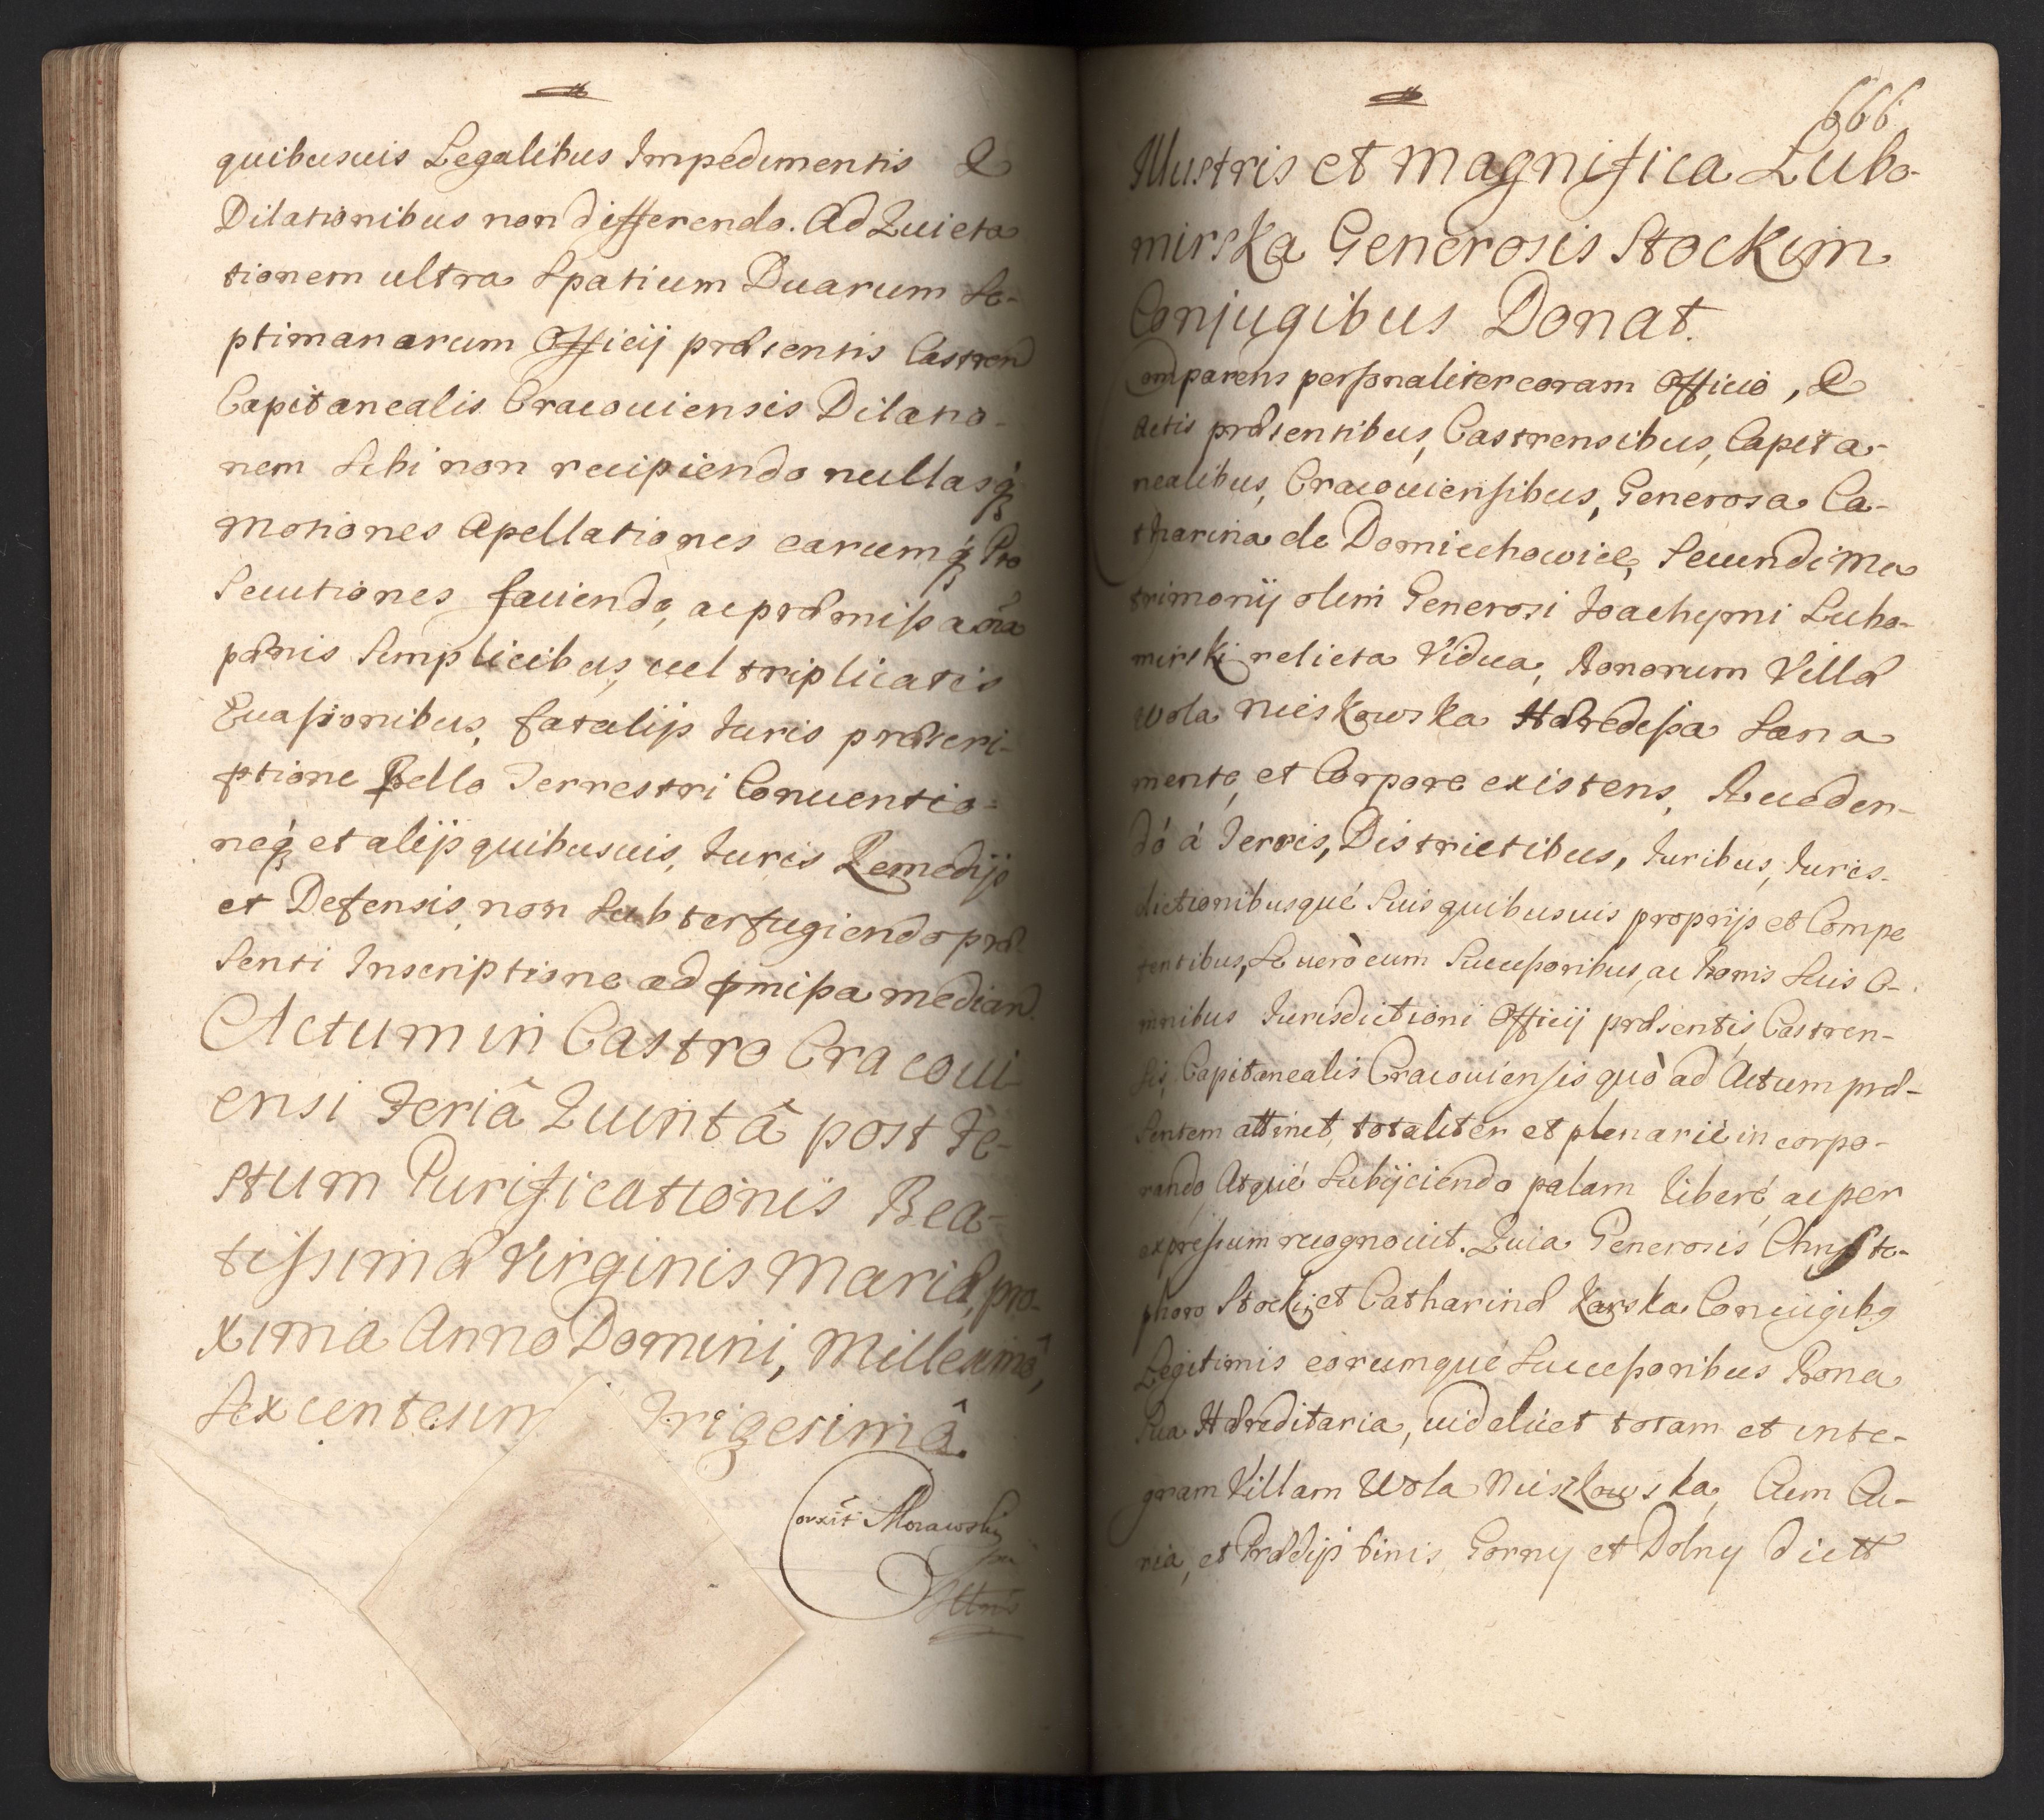 quibusuis Legalibus Impedimentis &
Dilationibus non differendo. Ad Quieta
tionem ultra Spatium Duarum Se-
ptimanarum Officij præsentis Castren
Capitanealis Cracouiensis Dilatio-
nem Sibi non recipiendo nullasq́
Motiones Apellationes earumq́ Pro
Secutiones faciendo, ac præmissa oīa
pænis Simplicibus, uel triplicatis
Euasionibus, fatalijs Iuris præscri-
ptione Bello Terrestri Conuentio-
neq́ et alijs quibusuis, Iuris Remedijs
et Defensis non Subterfugiendo præ
Senti Inscriptione ad pmissa mediand.
Actum in Castro Cracoui-
ensi Feriâ Quintâ post Fe-
stum Purificationis Bea-
tissimæ Virginis Mariæ, pro-
xima Anno Domini, Millesimô,
Sexcentesim Trigesimô.
Corxīt Morawski
666
Illustris et Magnifica Lubo-
mirska Generosis Stockim
Conjugibus Donat.
Comparens personaliter coram Officio, &
Actis præsentibus, Castrensibus, Capita-
nealibus, Cracouiensibus, Generosa Ca-
tharina de Domiechowice, Secundi Ma
trimonij olim Generosi Joachymi Lubo-
mirski relicta Vidua, Bonorum Villæ
Wola Nieskowska Hæredessa Sana
mente, et Corpore existens, Receden-
dó á Terris, Districtibus, Iuribus, Iuris-
dictionibusqué Suis quibusuis proprijs et Compe
tentibus, Se uerò cum Successoribus, ac Bonis Suis O-
mnibus Iurisdictioni Officij præsentis, Castren-
sis, Capitanealis Cracouiensis quò ad Actum præ-
Sentem attinet, totaliter et plenarié incorpo-
rando, Atqué Subijciendo palam liberé, ac per
expressum recognouit. Quia Generosis Christo-
phoro Stocki, et Catharinæ Karska Coniugibq
Legitimis eorumqué Successoribus Bona
Sua Hæreditaria, uidelicet totam et inte-
gram Villam Wola Nieszkowska, Cum Cu-
ria, et Prædijs binis, Gorny et Dolny dictt